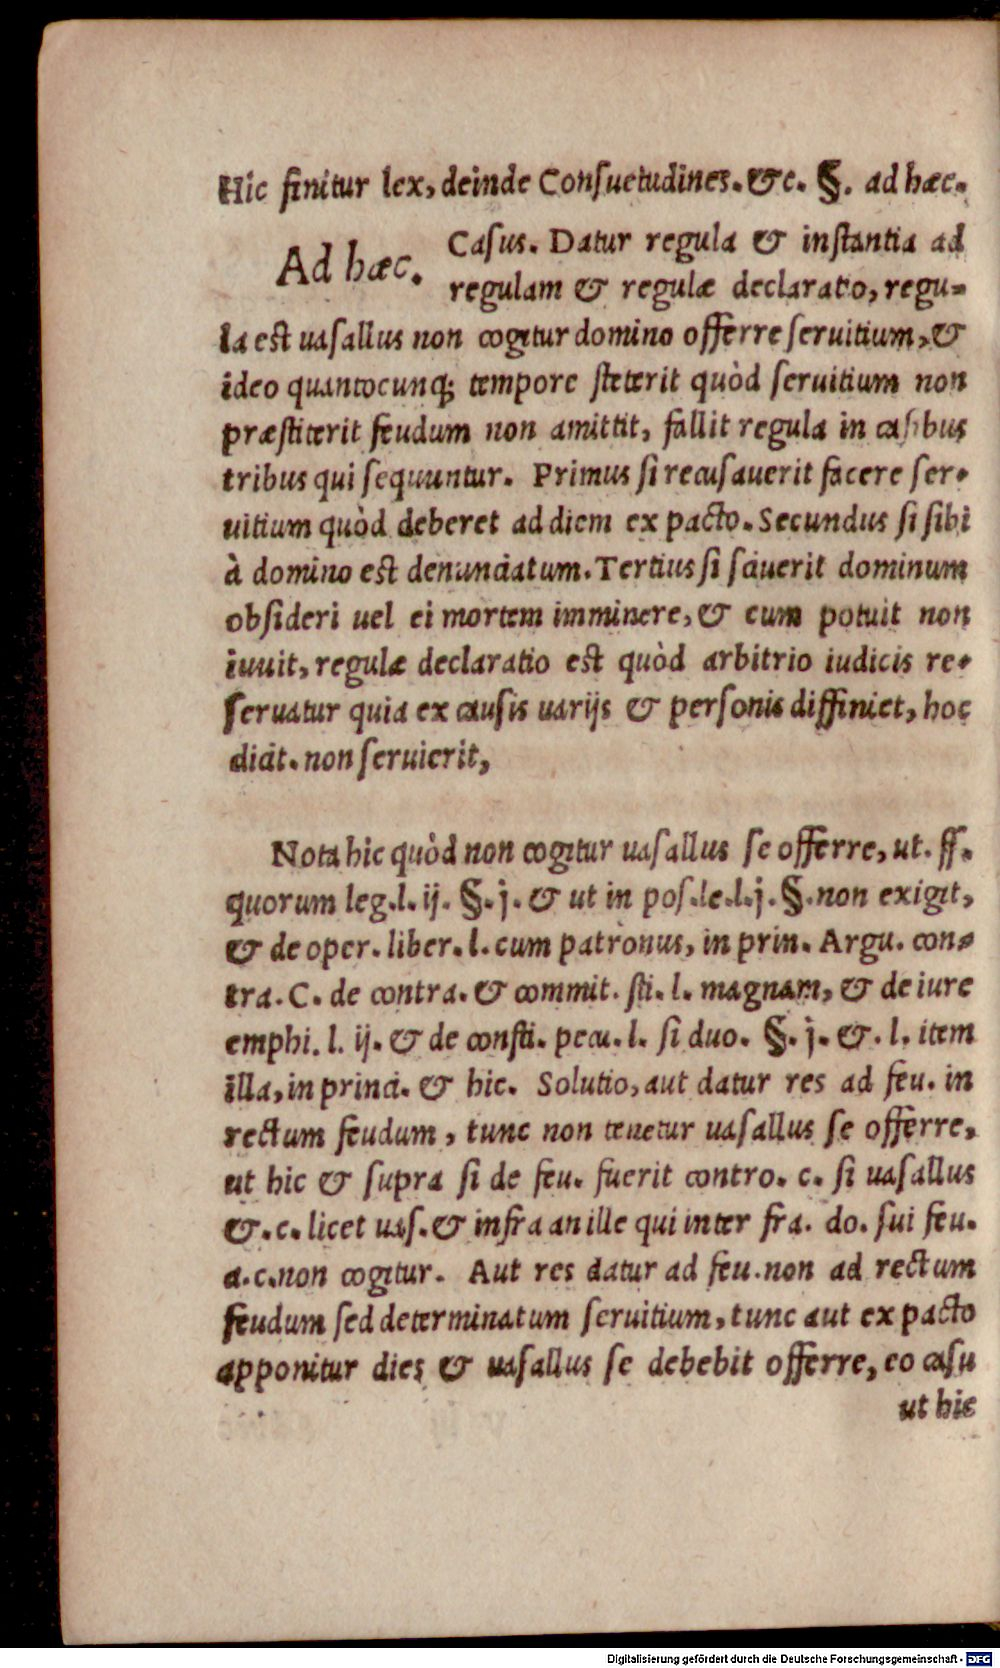 Hic finitur lex, deinde Consuetudines. &c. §. ad hæc.
Ad hæc.
Casus. Datur regula & instantia ad
regulam & regulæ declaratio, regu-
la est uasallus non cogitur domino offerre seruitium, &
ideo quantocunq; tempore steterit quòd seruitium non
præstiterit feudum non amittit, fallit regula in casibus
tribus qui sequuntur. Primus si recusauerit facere ser-
uitium quòd deberet ad diem ex pacto. Secundus si sibi
à domino est denunciatum. Tertius si sciuerit dominum
obsideri uel ei mortem imminere, & cum potuit non
iuuit, regulæ declaratio est quòd arbitrio iudicis re-
seruatur quia ex causis uarijs & personis diffiniet, hoc
dicit. non seruierit,
Nota hic quòd non cogitur uasallus se offerre, ut. ff.
quorum leg. l. ij. §. j. & ut in pos. le. l. j. §. non exigit,
& de oper. liber. l. cum patronus, in prin. Argu. con-
tra. C. de contra. & commit. sti. l. magnam, & de iure
emphi. l. ij. & de consti. pecu. l. si duo. §. j. & . l. item
illa, in princi. & hic. Solutio, aut datur res ad feu. in
rectum feudum, tunc non tenetur uasallus se offerre,
ut hic & supra si de feu. fuerit contro. c. si uasallus
&. c. licet uas. & infra an ille qui inter fra. do. sui feu.
a. c. non cogitur. Aut res datur ad feu. non ad rectum
feudum sed determinatum seruitium, tunc aut ex pacto
apponitur dies & uasallus se debebit offerre, eo casu
ut hic
Digitalisierung gefördert durch die Deutsche Forschungsgemeinschaft - DFG